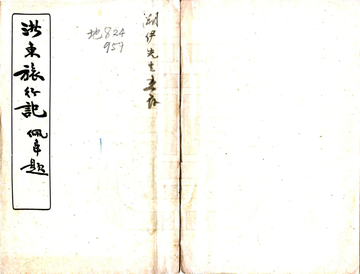 浙東旅行記
佩韋題
地824
957
湖伊先生惠存